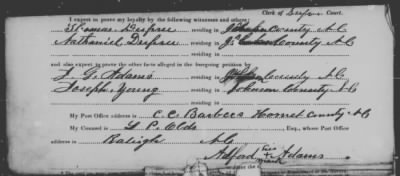 Clerk of Court.
I expect to prove my loyalty by the following witnesses and others:
Thomas Dupree residing in Johnson County N.C
Nathaniel Dupree residing in County N.C
residing in
and also expect to prove the other facts alleged in the foregoing petition by
J. G. Adams residing in County N.C
Joseph Young residing in Johnson County N.C
residing in
My Post Office address is C. C. Barbees Hornet County N.C
My Counsel is L. P. Olds Esq., whose Post Office
address is Raleigh N.C
Alford his Adams
mark